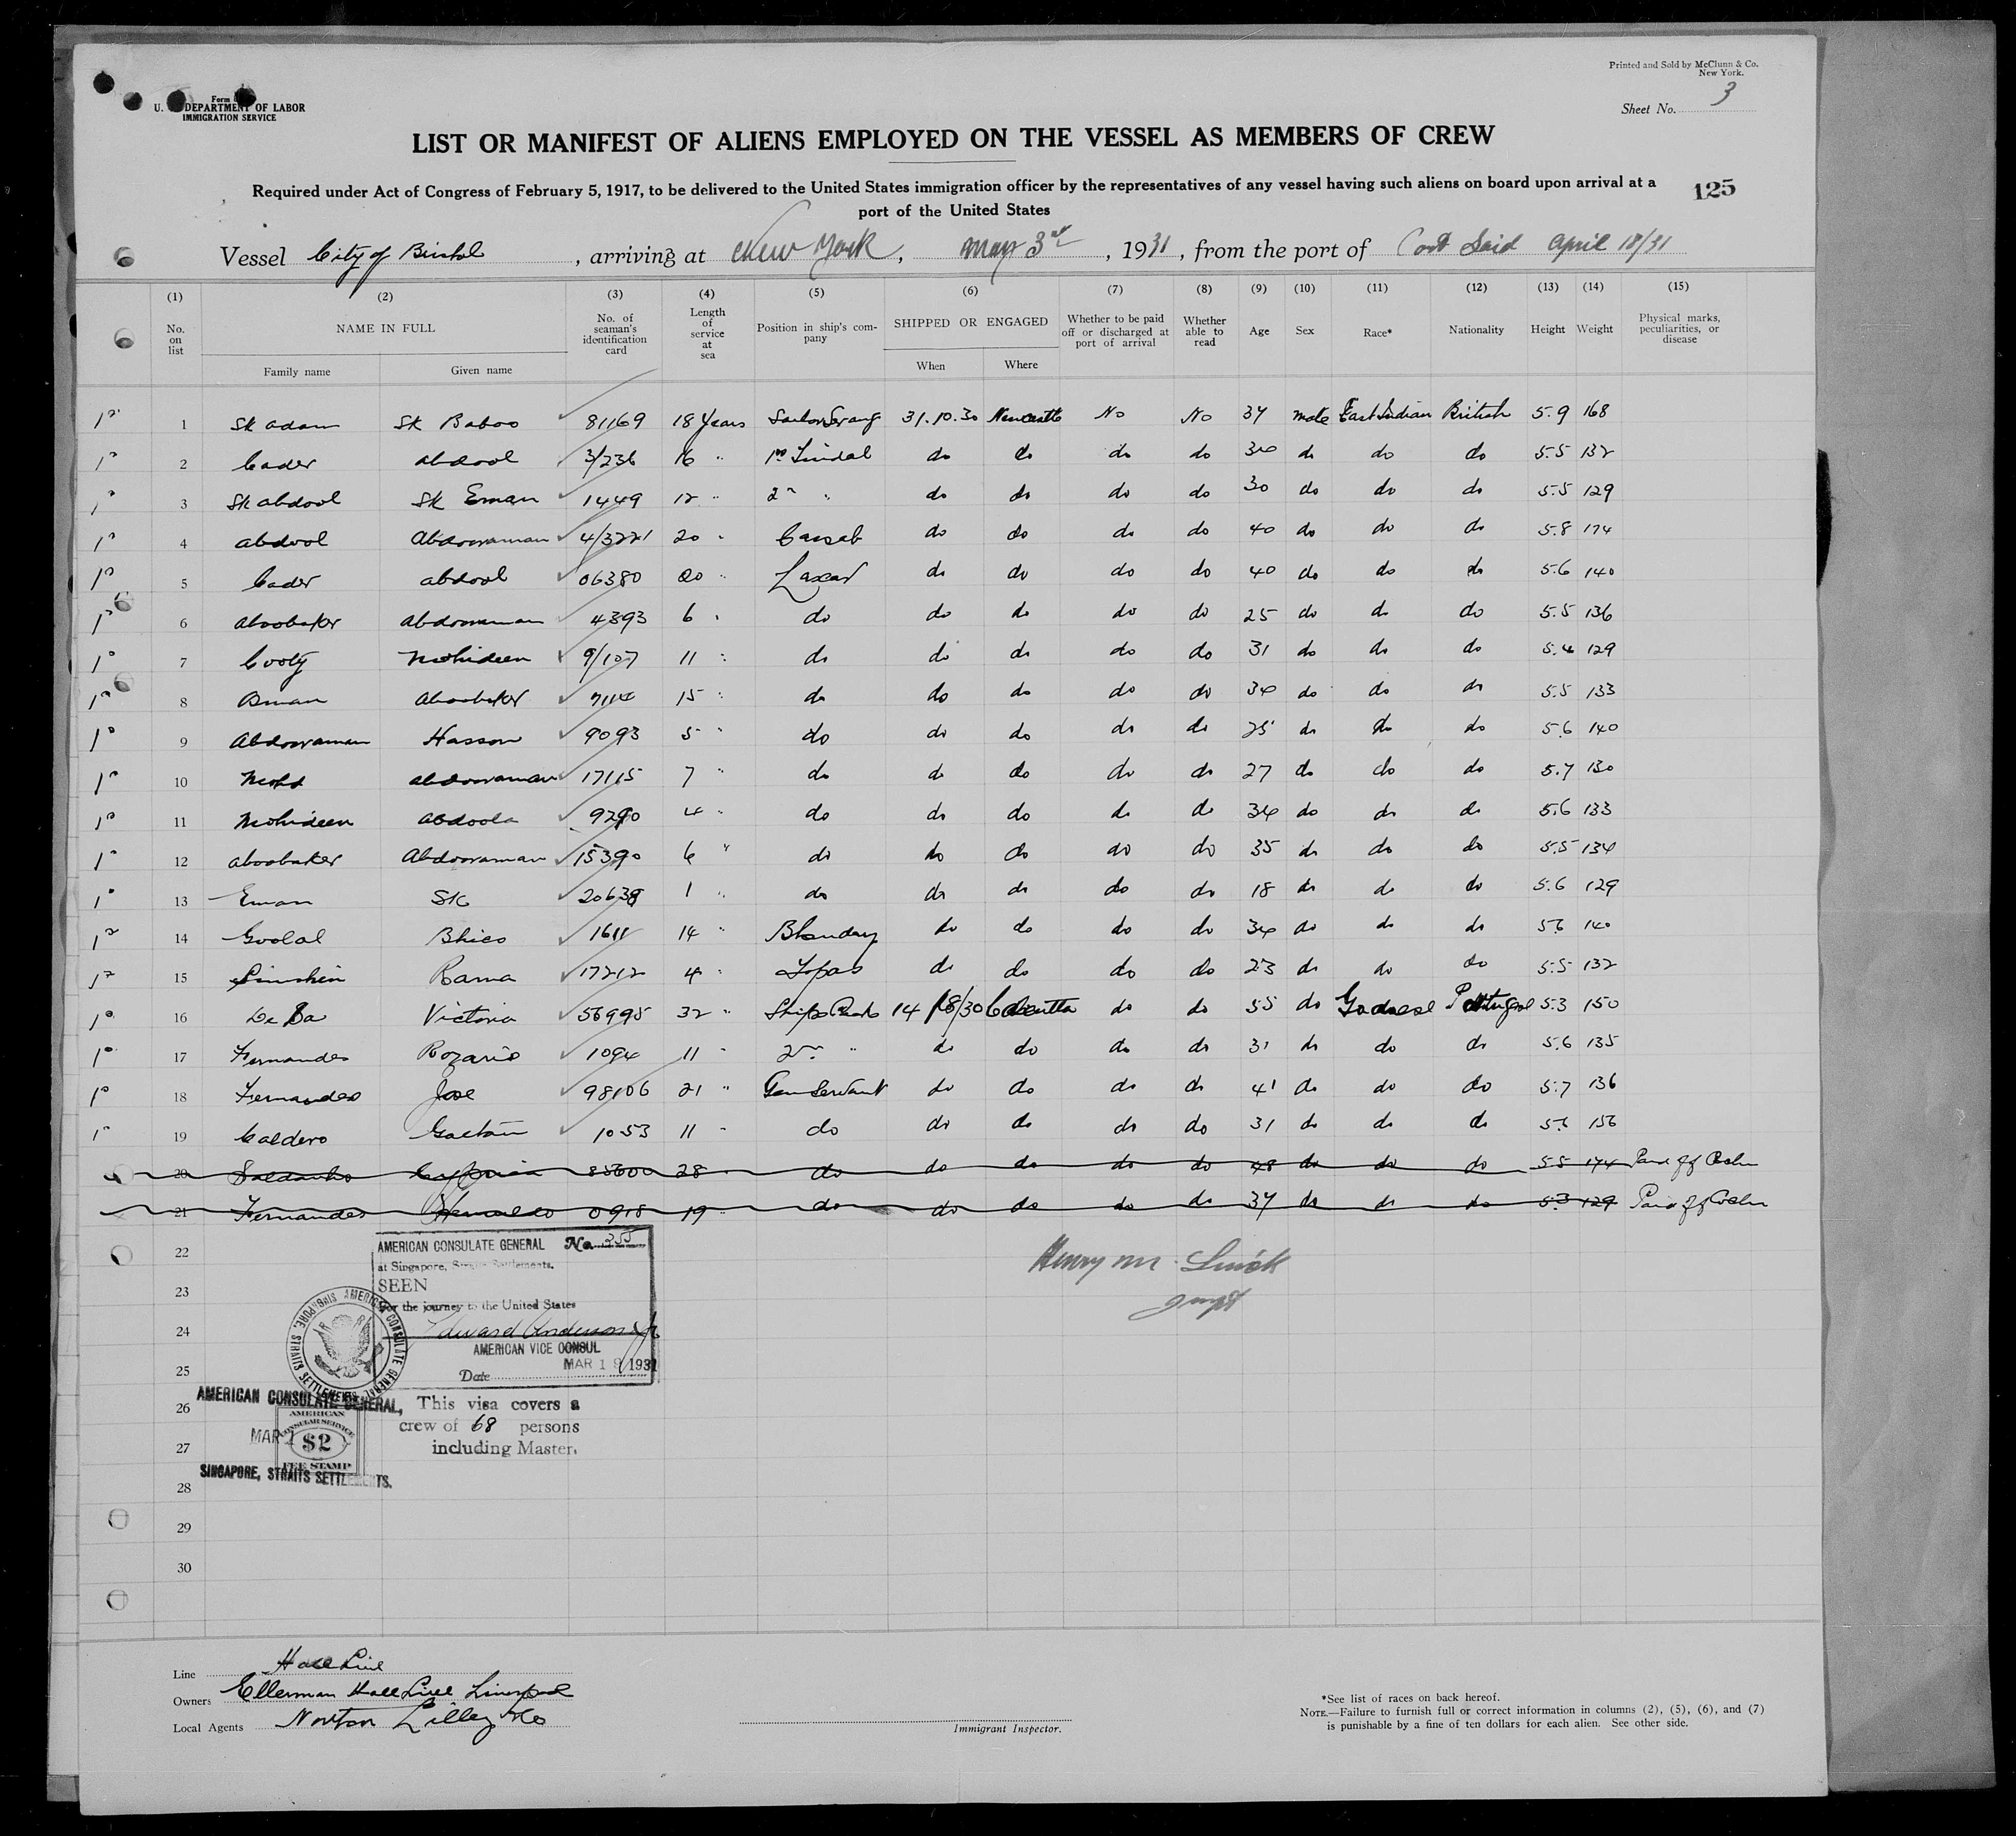 Printed and Sold by McClunn & Co.
New York.
Form
U. DEPARTMENT OF LABOR
IMMIGRATION SERVICE
Sheet No. 3
LIST OR MANIFEST OF ALIENS EMPLOYED ON THE VESSEL AS MEMBERS OF CREW
Required under Act of Congress of February 5, 1917, to be delivered to the United States immigration officer by the representatives of any vessel having such aliens on board upon arrival at a
port of the United States
125
Vessel City of Bristol, arriving at New York, May 3rd, 1931, from the port of Port Said April 18/31
(1) (2) (3) (4) (5) (6) (7) (8) (9) (10) (11) (12) (13) (14) (15)
No. on list NAME IN FULL No. of seaman's identification card Length of service at sea Position in ship's company SHIPPED OR ENGAGED Whether to be paid off or discharged at port of arrival Whether able to read Age Sex Race* Nationality Height Weight Physical marks, peculiarities, or disease
Family name Given name When Where
1 Sk adam Sk Baboo 81169 18 Years 31.10.30 Newcastle No No 37 male East Indian British 5.9 168
2 Cader abdool 3/236 16 " 1st Tindal do do do do 34 do do do 5.5 132
3 Sk abdool Sk Eman 1449 12 " 2n " do do do do 30 do do do 5.5 129
4 abdool Abdowraman 4/3221 20 " Cassab do do do do 40 do do do 5.8 174
5 Cader abdool 06380 20 " Lascar do do do do 40 do do do 5.6 140
6 aboobaker Abdowraman 4393 6 " do do do do do 25 do do do 5.5 136
7 Cooty Mohideen 9/107 11 " do do do do do 31 do do do 5.4 129
8 Aboobaker 7114 15 " do do do do do 34 do do do 5.5 133
9 Abdowraman Hasson 9093 5 " do do do do do 25 do do do 5.6 140
10 Mohd abdowraman 17115 7 " do do do do do 27 do do do 5.7 130
11 Mohideen abdoola 9290 4 " do do do do do 34 do do do 5.6 133
12 aboobaker Abdowraman 15390 6 " do do do do do 35 do do do 5.5 134
13 Eman SK 20638 1 " do do do do do 18 do do do 5.6 129
14 Goolal Bhico 1611 14 " Bhandary do do do do 34 do do do 5.6 140
15 Rama 17212 4 " Topas do do do do 23 do do do 5.5 132
16 De Sa Victoria 56995 32 " 14/18/30 Calcutta do do 55 do Goanese Portugese 5.3 150
17 Fernandes Rozario 1094 11 " 2n " do do do do 31 do do do 5.6 135
18 Fernandes Jose 98106 21 " Gen Servant do do do do 41 do do do 5.7 136
19 Caldero Gaetan 1053 11 " do do do do do 31 do do do 5.6 156
20 Saldanha 85600 28 do do do do do 48 do do do 5.5 174 Paid off
21 Fernandes 0918 19 " do do do do do 37 do do do 5.3 129 Paid off
22
23
24
25
26
27
28
29
30
AMERICAN CONSULATE GENERAL No. 255
at Singapore, Straits Settlements.
SEEN
For the journey to the United States
Edward Anderson Jr
AMERICAN VICE CONSUL
MAR 19 1931
Date
AMERICAN CONSULATE GENERAL SINGAPORE, STRAITS SETTLEMENTS
AMERICAN CONSULATE GENERAL,
MAR 1
SINGAPORE, STRAITS SETTLEMENTS.
AMERICAN
CONSULAR SERVICE
$2
FEE STAMP
This visa covers a
crew of 68 persons
including Master.
Henry M.
Line Hall Line
Owners Ellerman Hall Line Liverpool
Local Agents Norton Lilley & Co
Immigrant Inspector.
*See list of races on back hereof.
NOTE.—Failure to furnish full or correct information in columns (2), (5), (6), and (7)
is punishable by a fine of ten dollars for each alien. See other side.